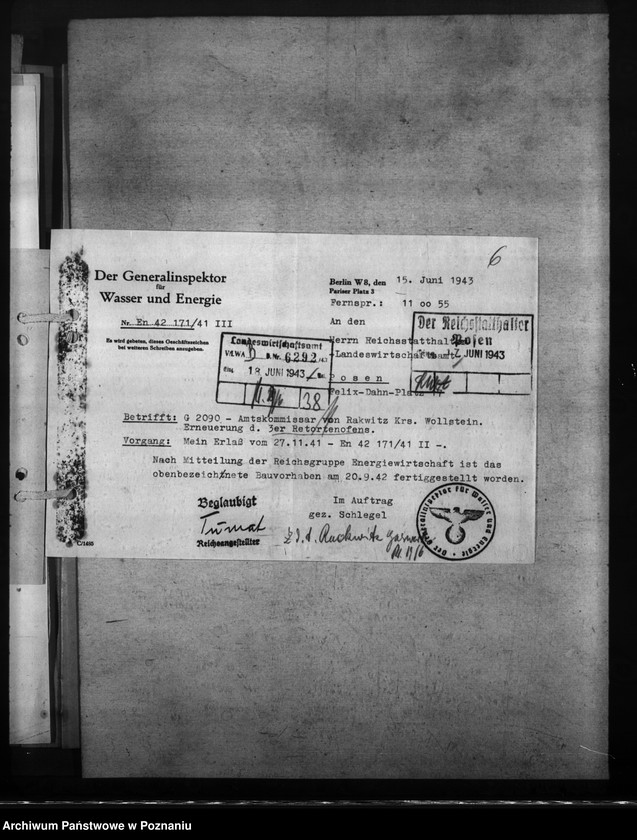 6
Der Generalinspektor
für
Wasser und Energie
Nr. En 42 171/41 III
Es wird gebeten, dieses Geschäftszeichen
bei weiteren Schreiben anzugeben.
Berlin W 8, den 15. Juni 1943
Pariser Platz 3
Fernspr.: 11 oo 55
An den
Herrn Reichsstatthalter
-Landeswirtschaftsamt-
Posen
Felix-Dahn-Platz
Landeswirtschaftsamt
B.Nr. 6292/43
Eing. 18. JUNI 1943
38
Der Reichsstatthalter
Posen
JUNI 1943
Betrifft: G 2090 - Amtskommissar von Rakwitz Krs. Wollstein.
Erneuerung d. 3er Retortenofens.
Vorgang: Mein Erlaß vom 27.11.41 - En 42 171/41 II -.
Nach Mitteilung der Reichsgruppe Energiewirtschaft ist das
obenbezeichnete Bauvorhaben am 20.9.42 fertiggestellt worden.
Beglaubigt
Reichsangestellter
Im Auftrag
gez. Schlegel
Z.d.A. Rackwitz
Der Generalinspektor für Wasser und Energie
C/1650
Archiwum Państwowe w Poznaniu